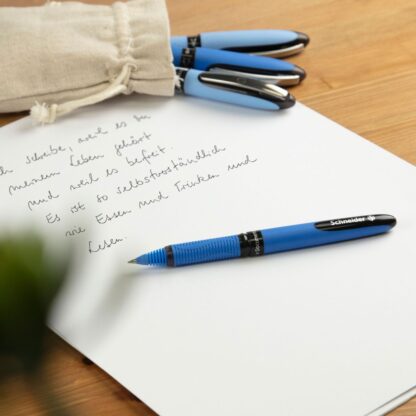 ch schreibe, weil es zu
meinem Leben gehört
und weil es befreit.
Es ist so selbstverständlich
wie Essen und Trinken und
Lesen
Schneider